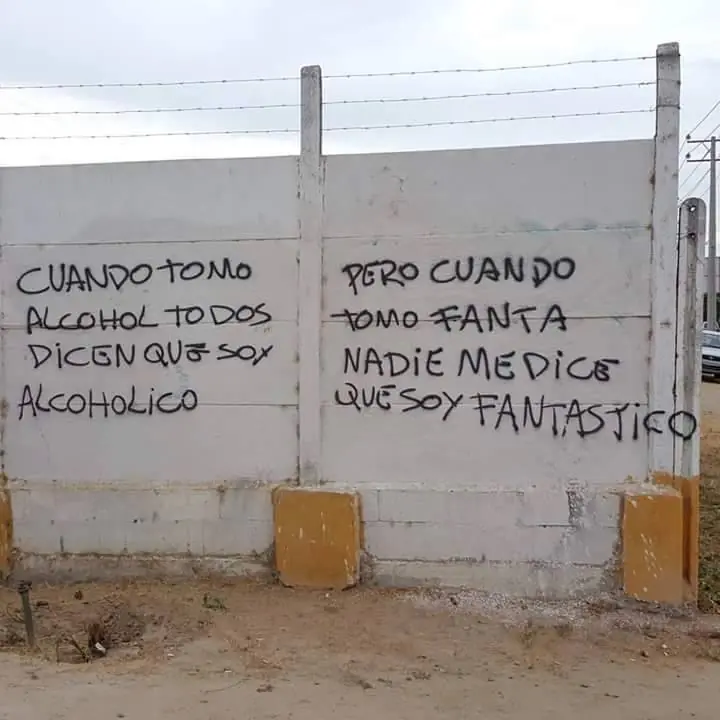 CUANDO TOMO
ALCOHOL TODOS
DICEN QUE SOY
ALCOHOLICO
PERO CUANDO
TOMO FANTA
NADIE ME DICE
QUE SOY FANTASTICO